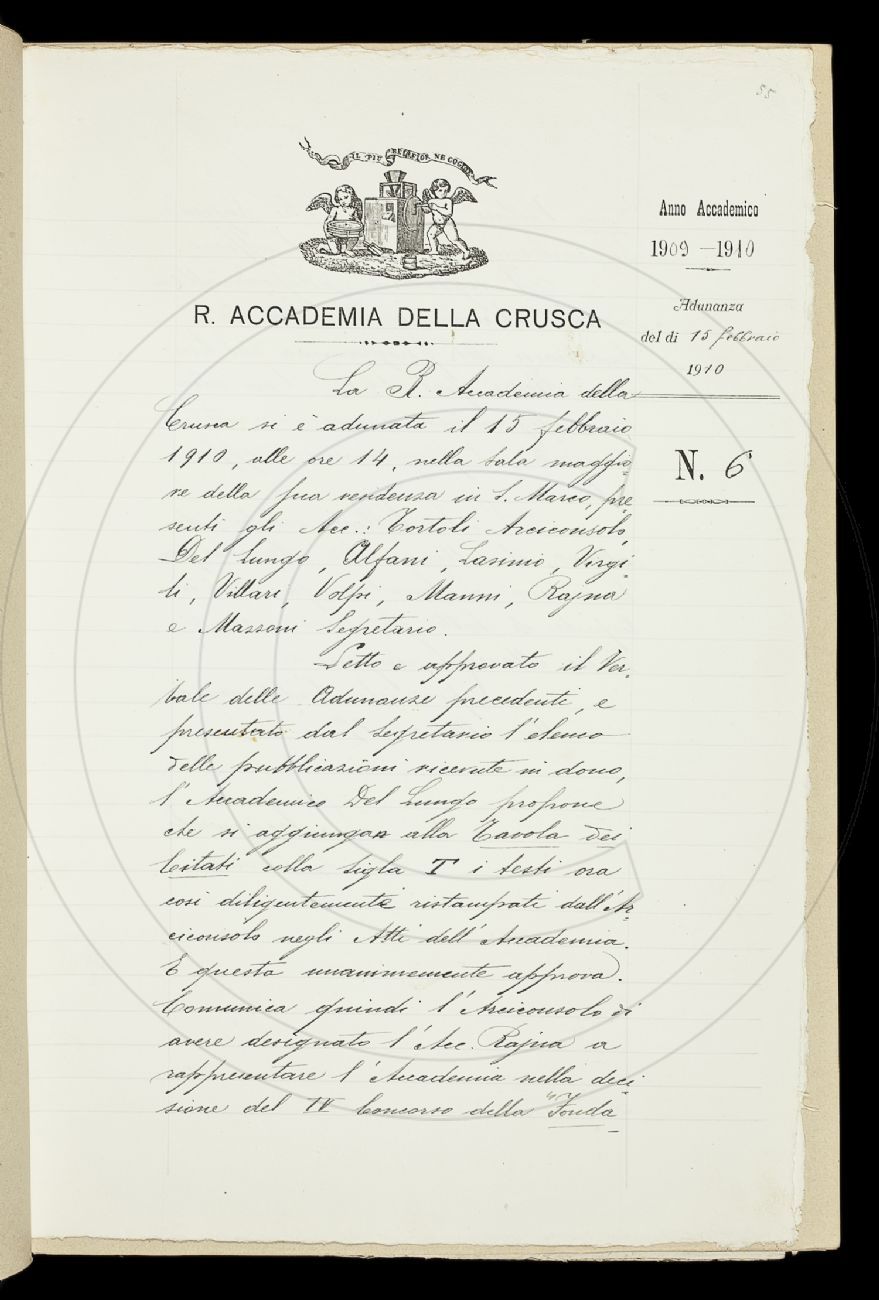 55
IL PIÙ BEL FIOR NE COGLIE
Anno Accademico
1909-1910
Adunanza
del dì 15 febbraio
1910
N. 6
R. ACCADEMIA DELLA CRUSCA
La R. Accademia della
Crusca si è adunata il 15 febbraio
1910, alle ore 14, nella sala maggio-
re della sua residenza in S. Marco, pre-
senti gli Acc.: Tortoli Arciconsolo,
Del Lungo, Alfani, Lasinio, Virgi-
li, Villari, Volpi, Manni, Rajna
e Mazzoni Segretario.
Letto e approvato il Ver-
bale delle Adunanze precedenti, e
presentato dal Segretario l'elenco
delle pubblicazioni ricevute in dono,
l'Accademico Del Lungo propone
che si aggiungan alla Tavola dei
Citati colla sigla T i testi ora
così diligentemente ristampati dall'Ar-
ciconsolo negli Atti dell'Accademia.
E questa unanimemente approva.
Comunica quindi l'Arciconsolo di
avere designato l'Acc. Rajna a
rappresentare l'Accademia nella deci-
sione del IV Concorso della "Fonda-